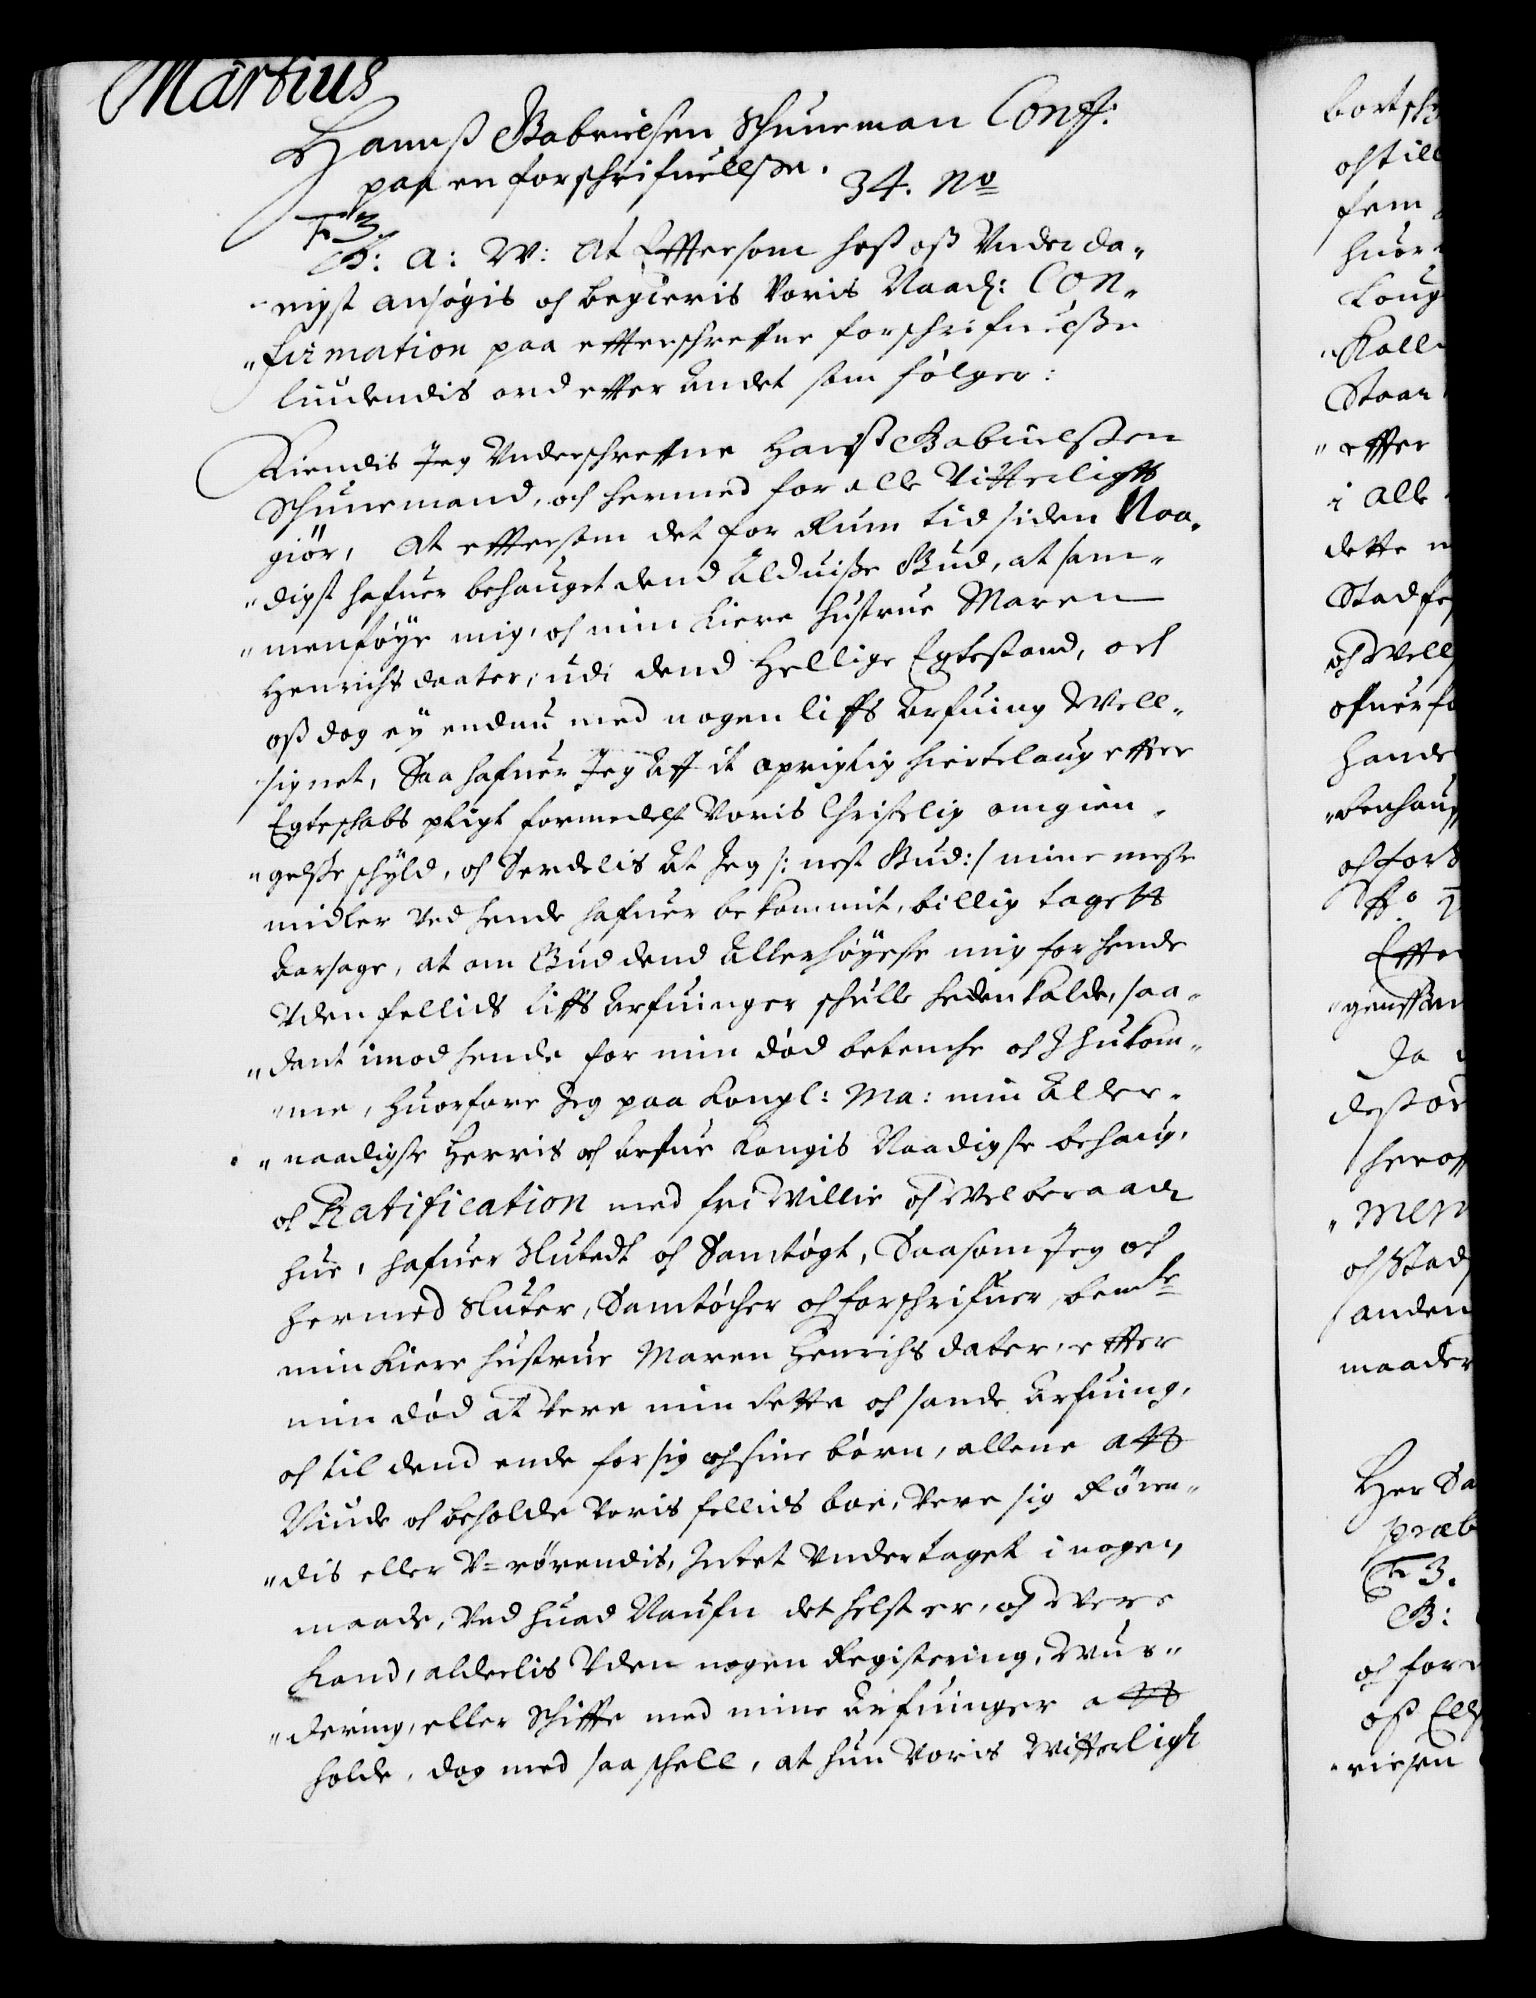 Martius
Hannß Gabrielsen Schuneman Conf:
paa en forschrifuellsse. 34. No
F 3.
G: A: W: At Efftersom hoß oß Underda¬
nigst ansøgis och begieris Voris Naad: Con¬
firmation paa effterschreffne forschrifuelße
liudendis ord effter andet som følger:
Kiendis Jeg Underschreffne Hanß Gabrielssen
Schunemand, och hermed for alle Vitterligtt
giør, At effterson det for Rum tid siden Naa¬
digst hafuer behauget dend Alduiße Gud, at sam¬
menføye mig, och min kiere hustrue Maren
Henrichsdaater, udi dend Hellige Egtestand, och
oß dog ey endnu med nogen liffs Arfuing Well¬
signet, Saa hafuer Jeg Aff it oprigtig hiertelaug effter
Egteschabs pligt formedelst Voris Christelig omgien¬
gelße schyld, och Serdelis At Jeg /: nest Gud :/ mine meste
midler Ved hende hafuer bekommit, billig tagett
Aarsage, at om Gud dend Allerhøyeste mig for hende
Uden fellids liffs Arfuinger schulle hedenkalde, saa¬
dant imod hende for min død betenche och Jhukom¬
me, huorfore Jeg paa Kongl: Ma: min Aller¬
naadigste Herris och Arfue Kongis Naadigste behaug,
och Ratification med fri Willie och Velberaad
hue, hafuer Slutedt och Samtøgt, Saasom Jeg och
hermed Sluter, Samtøcher och forschrifuer, bemte
min kiere hustrue Maren Henrichsdater, effter
min død at Vere min rette och sande Arfuing,
och til dend ende for sig och sine børn, allene att
Niude och beholde Voris fellids boe, Vere sig Røren¬
dis eller U=rørendis, Intet Undertaget i nogen
maade, Ved huad Naufn det helst er, och Vere
kand, alderlis Uden nogen Registering, Wur¬
dering, eller Schiffte med mine Arfuinger att
holde, dog med saa schell, at hun Voris Witterligh